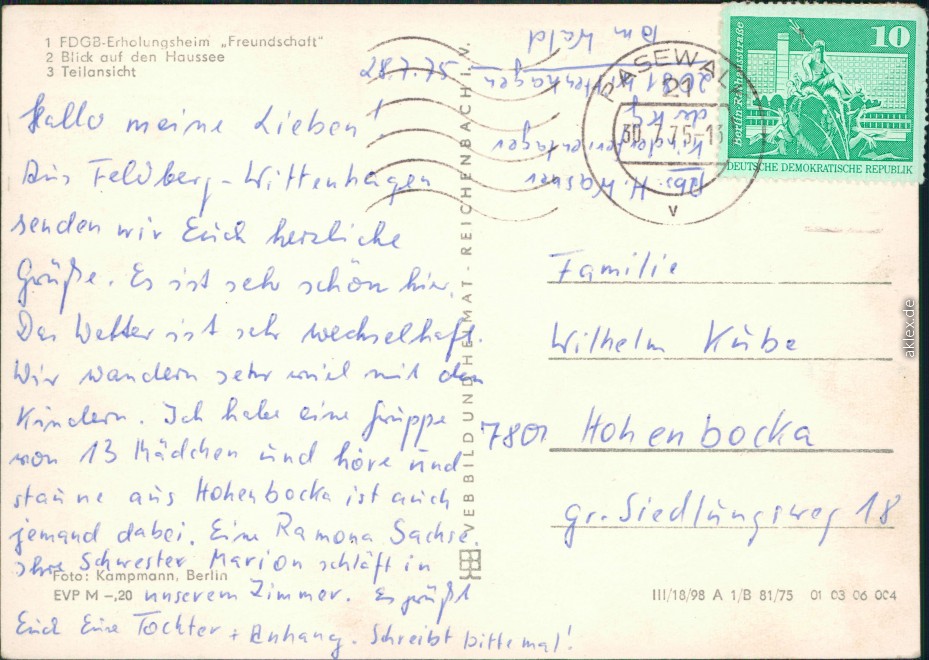 1 FDGB-Erholungsheim „Freundschaft“
2 Blick auf den Haussee
3 Teilansicht
28.7.75
Hallo meine Lieben!
Aus Feldberg-Wittenhagen
senden wir Euch herzliche
Grüße. Es ist sehr schön hier.
Das Wetter ist sehr wechselhaft.
Wir wandern sehr viel mit den
Kindern. Ich habe eine Gruppe
von 13 Mädchen und höre und
staune aus Hohenbocka ist auch
jemand dabei. Eine Ramona Sachse.
Ihre Schwester Marion schläft in
unserem Zimmer. Es grüßt
Euch Eure Tochter + Anhang. Schreibt bitte mal!
Foto: Kampmann, Berlin
EVP M –,20
VEB BILD UND HEIMAT · REICHENBACH i. V.
Abs. H. Wasner
Kinderferienlager
der KJ
2081 Wittenhagen
am Wald
PASEWALK
21
30.7.75-13
v
10
Berlin-Rathausstraße
DEUTSCHE DEMOKRATISCHE REPUBLIK
Familie
Wilhelm Kube
7801 Hohenbocka
gr. Siedlungsweg 18
III/18/98 A 1/B 81/75 01 03 06 004
aklex.de